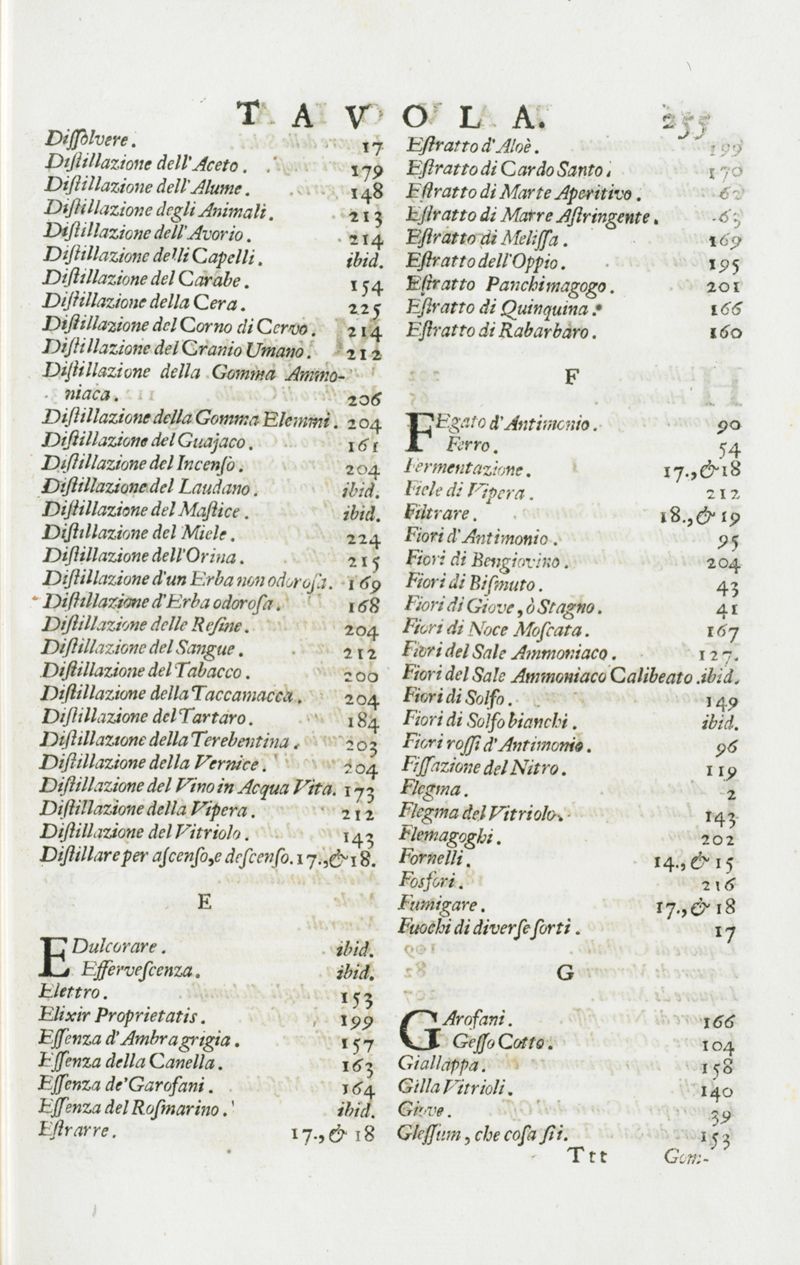 TAVOLA. 255
Diſſolvere. 17
Diſtillazione dell'Aceto. 179
Diſtillazione dell'Alume. 148
Diſtillazione degli Animali. 213
Diſtillazione dell'Avorio. 214
Diſtillazione delli Capelli. ibid.
Diſtillazione del Carabe. 154
Diſtillazione della Cera. 225
Diſtillazione del Corno di Cervo. 214
Diſtillazione del Cranio Umano. 212
Diſtillazione della Gomma Ammo-
niaca. 206
Diſtillazione della Gomma Elemmi. 204
Diſtillazione del Guajaco. 161
Diſtillazione del Incenſo. 204
Diſtillazione del Laudano. ibid.
Diſtillazione del Maſtice. ibid.
Diſtillazione del Miele. 224
Diſtillazione dell'Orina. 215
Diſtillazione d'un Erba non odoroſa. 169
Diſtillazione d'Erba odoroſa. 168
Diſtillazione delle Reſine. 204
Diſtillazione del Sangue. 212
Diſtillazione del Tabacco. 200
Diſtillazione della Taccamacca. 204
Diſtillazione del Tartaro. 184
Diſtillazione della Terebentina. 203
Diſtillazione della Vernice. 204
Diſtillazione del Vino in Acqua Vita. 173
Diſtillazione della Vipera. 212
Diſtillazione del Vitriolo. 143
Diſtillare per aſcenſo, e deſcenſo. 17., & 18.
E
EDulcorare. ibid.
Efferveſcenza. ibid.
Elettro. 153
Elixir Proprietatis. 199
Eſſenza d'Ambragrigia. 157
Eſſenza della Canella. 163
Eſſenza de' Garofani. 164
Eſſenza del Roſmarino. ibid.
Eſtrarre. 17., & 18
Eſtratto d'Aloè. 199
Eſtratto di Cardo Santo. 170
Eſtratto di Marte Aperitivo. 
Eſtratto di Marre Aſtringente. 63
Eſtratto di Meliſſa. 169
Eſtratto dell'Oppio. 195
Eſtratto Panchimagogo. 201
Eſtratto di Quinquina. 166
Eſtratto di Rabarbaro. 160
F
FEgato d'Antimonio. 90
Ferro. 54
Fermentazione. 17., & 18
Fiele di Vipera. 212
Filtrare. 18., & 19
Fiori d'Antimonio. 95
Fiori di Bengiovino. 204
Fiori di Biſmuto. 43
Fiori di Giove, ò Stagno. 41
Fiori di Noce Moſcata. 167
Fiori del Sale Ammoniaco. 127.
Fiori del Sale Ammoniaco Calibeato. ibid.
Fiori di Solfo. 149
Fiori di Solfo bianchi. ibid.
Fiori roſſi d'Antimonio. 96
Fiſſazione del Nitro. 119
Flegma. 2
Flegma del Vitriolo. 143
Flemagoghi. 202
Fornelli. 14., & 15
Fosfori. 216
Fumigare. 17., & 18
Fuochi di diverſe ſorti. 17
G
GArofani. 166
Geſſo Cotto. 104
Giallappa. 158
Gilla Vitrioli. 140
Giove. 39
Gleſſum, che coſa ſii. 153
Ttt Gom-